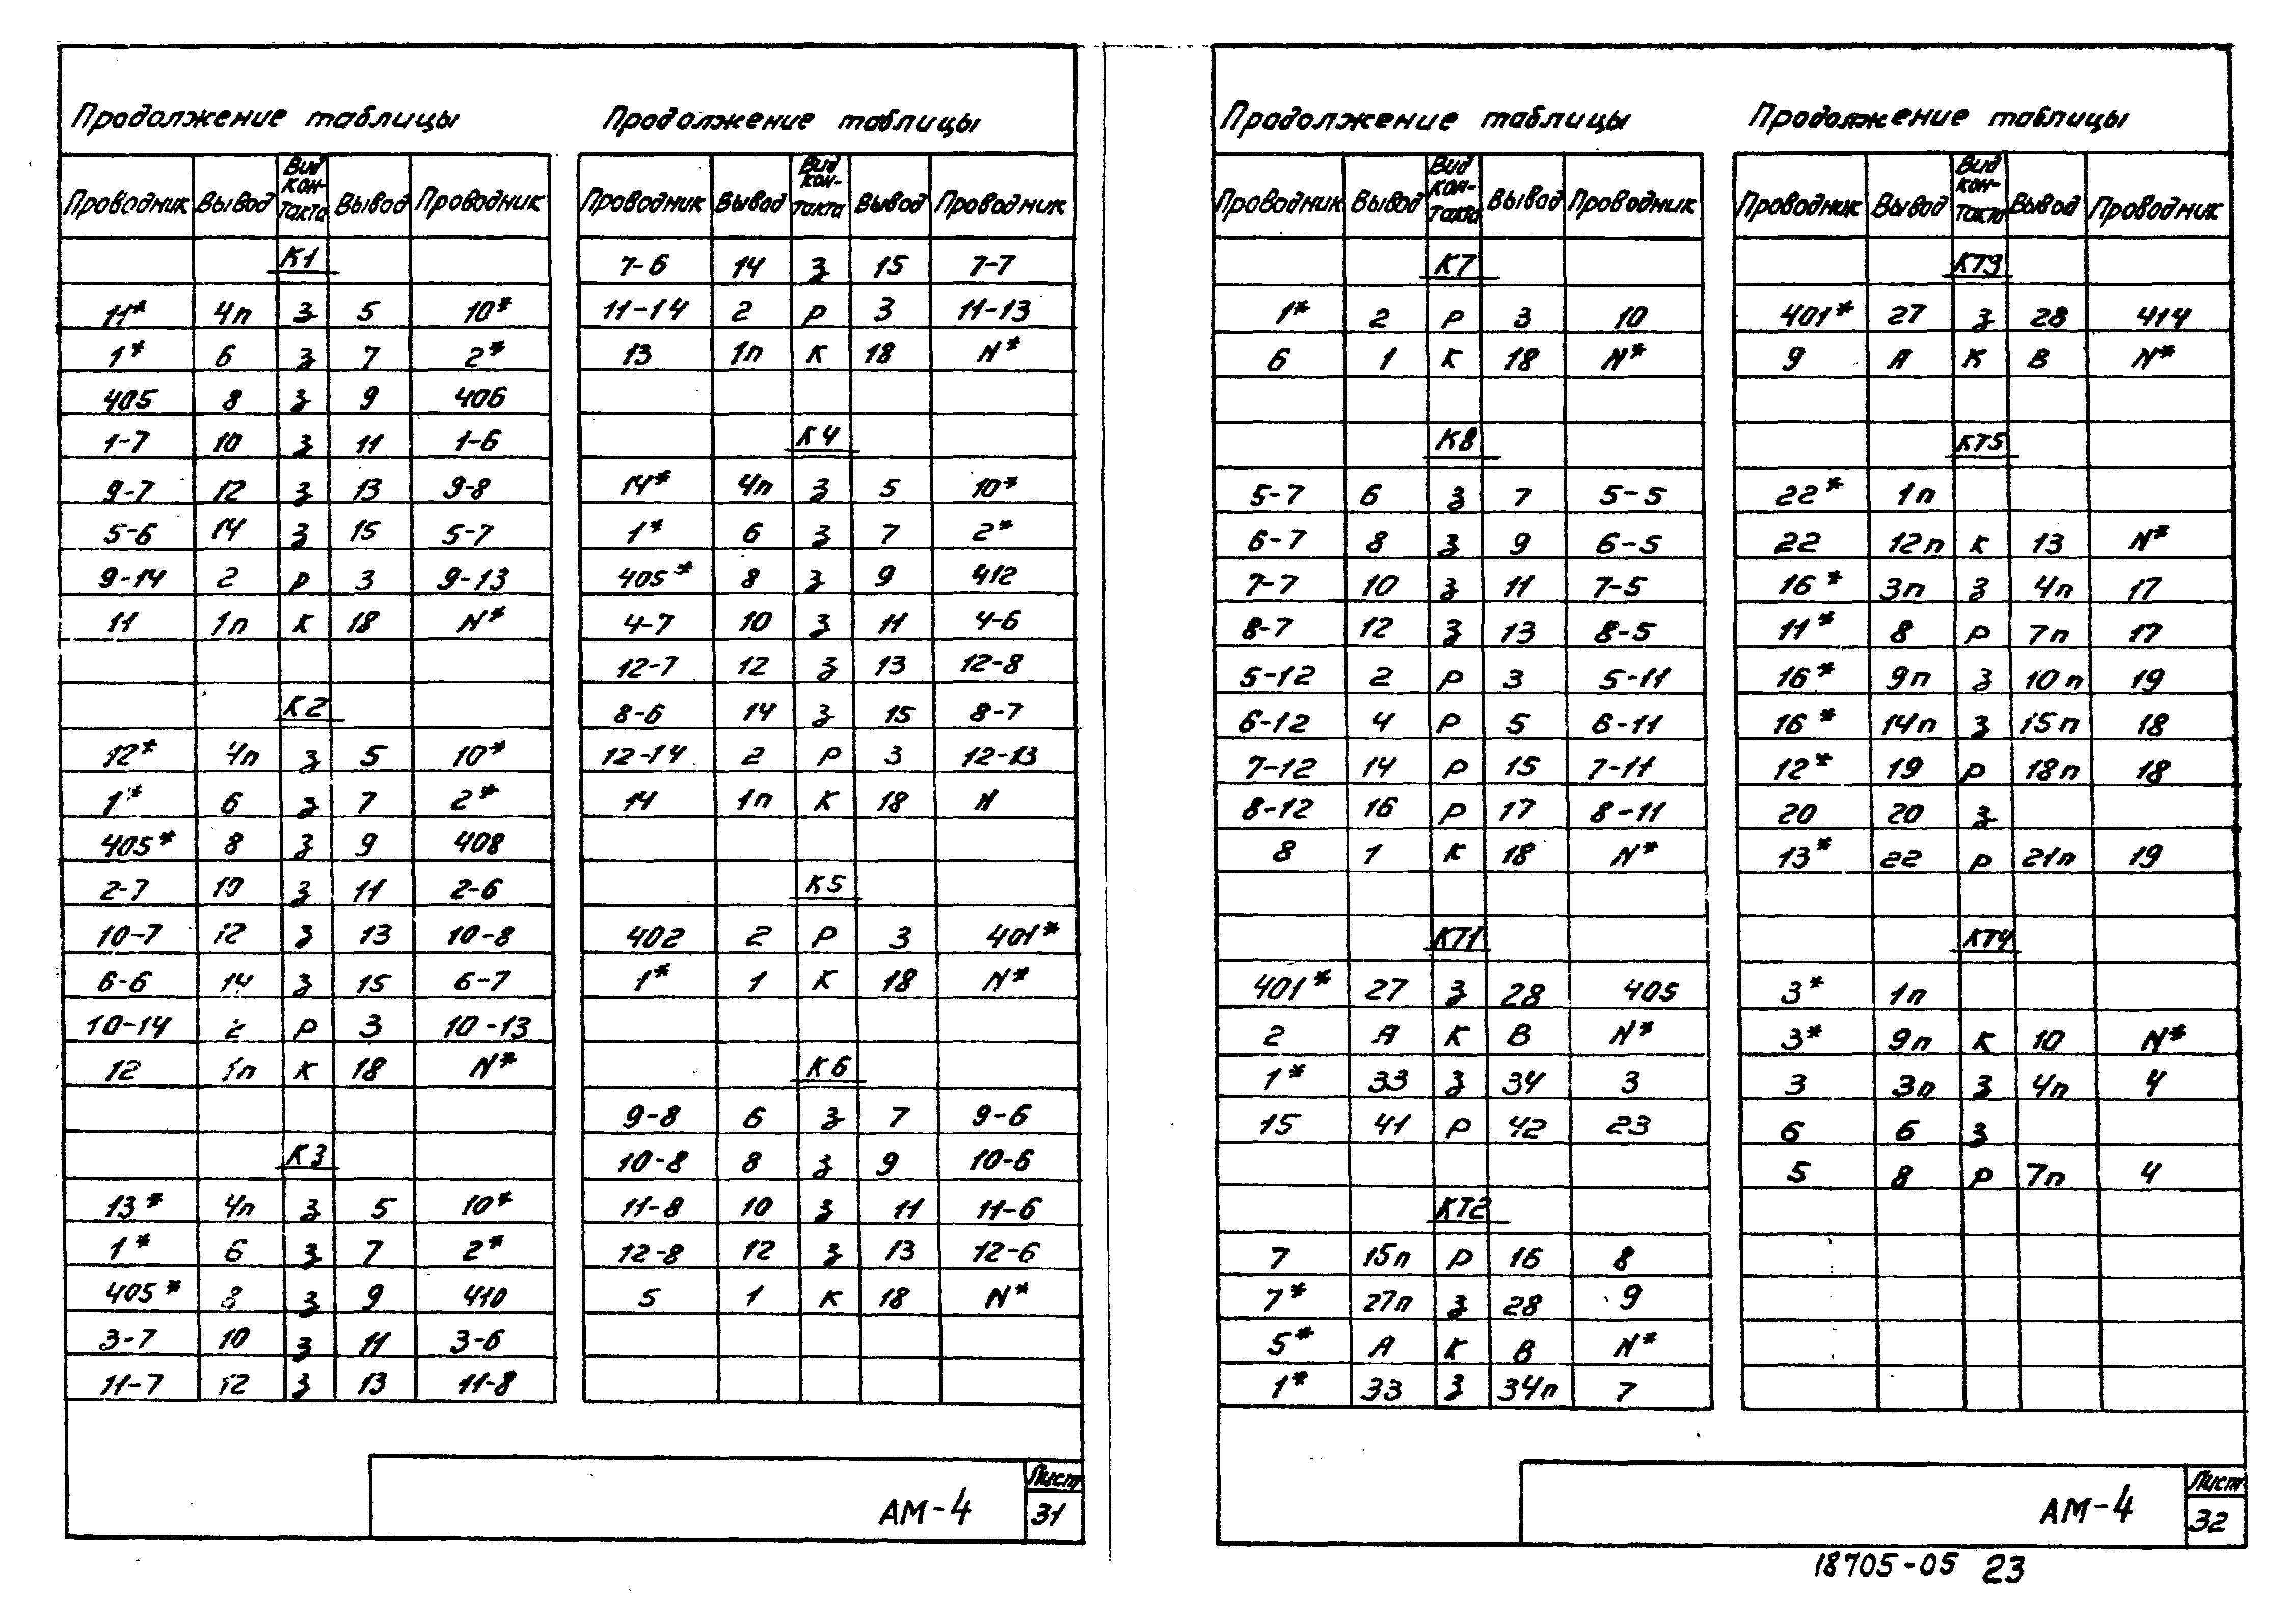 Продолжение таблицы
Проводник Вывод Вид контакта Вывод Проводник
К1
11* 4п з 5 10*
1* 6 з 7 2*
405 8 з 9 406
1-7 10 з 11 1-6
9-7 12 з 13 9-8
5-6 14 з 15 5-7
9-14 2 р 3 9-13
11 1п к 18 N*
К2
12* 4п з 5 10*
1* 6 з 7 2*
405* 8 з 9 408
2-7 10 з 11 2-6
10-7 12 з 13 10-8
6-6 14 з 15 6-7
10-14 2 р 3 10-13
12 1п к 18 N*
К3
13* 4п з 5 10*
1* 6 з 7 2*
405* 8 з 9 410
3-7 10 з 11 3-6
11-7 12 з 13 11-8
Продолжение таблицы
Проводник Вывод Вид кон-такта Вывод Проводник
7-6 14 з 15 7-7
11-14 2 р 3 11-13
13 1п к 18 N*
К4
14* 4п з 5 10*
1* 6 з 7 2*
405* 8 з 9 412
4-7 10 з 11 4-6
12-7 12 з 13 12-8
8-6 14 з 15 8-7
12-14 2 р 3 12-13
14 1п к 18 N
К5
402 2 р 3 401*
1* 1 к 18 N*
К6
9-8 6 з 7 9-6
10-8 8 з 9 10-6
11-8 10 з 11 11-6
12-8 12 з 13 12-6
5 1 к 18 N*
АМ-4
Лист
31
Продолжение таблицы
Проводник Вывод Вид кон-такта Вывод Проводник
К7
1* 2 р 3 10
6 1 к 18 N*
К8
5-7 6 з 7 5-5
6-7 8 з 9 6-5
7-7 10 з 11 7-5
8-7 12 з 13 8-5
5-12 2 р 3 5-11
6-12 4 р 5 6-11
7-12 14 р 15 7-11
8-12 16 р 17 8-11
8 1 к 18 N*
КТ1
401* 27 з 28 405
2 А к В N*
1* 33 з 34 3
15 41 р 42 23
КТ2
7 15п р 16 8
7* 27п з 28 9
5* А к В N*
1* 33 з 34п 7
Продолжение таблицы
Проводник Вывод Вид кон-такта Вывод Проводник
КТ3
401* 27 з 28 414
9 А к В N*
КТ5
22* 1п
22 12п к 13 N*
16* 3п з 4п 17
11* 8 р 7п 17
16* 9п з 10п 19
16* 14п з 15п 18
12* 19 р 18п 18
20 20 з
13* 22 р 21п 19
КТ4
3* 1п
3* 9п к 10 N*
3 3п з 4п 4
6 6 з
5 8 р 7п 4
АМ-4
Лист
32
18705-05 23